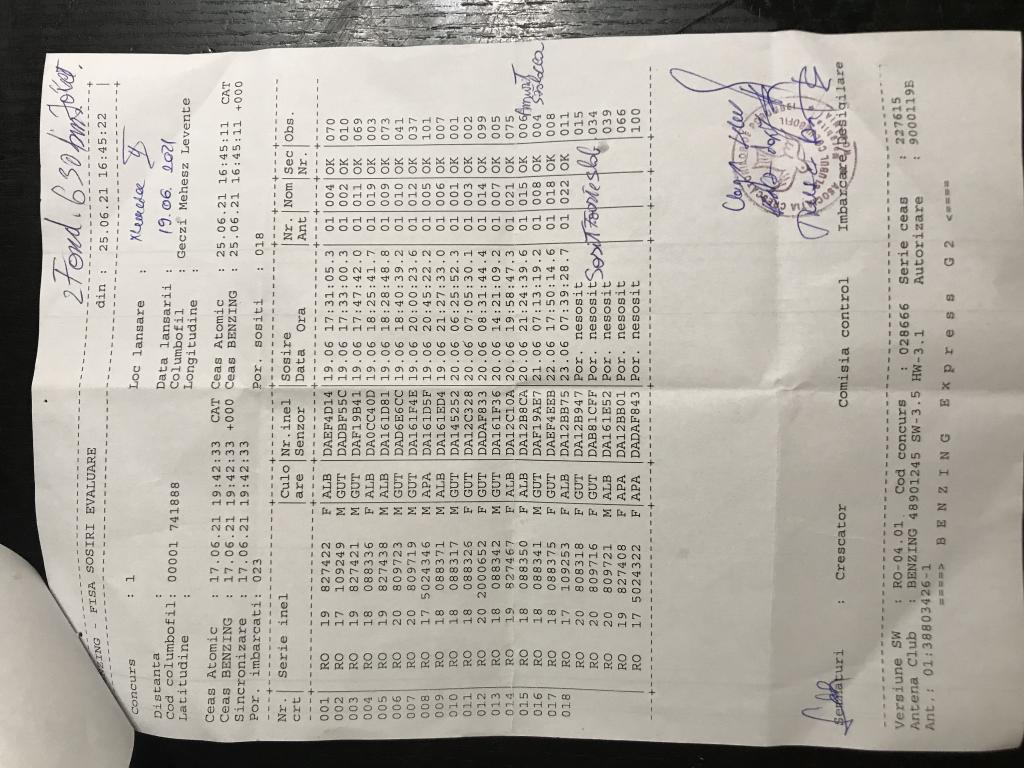 2 Fond. 630 km
BENZING - FISA SOSIRI EVALUARE din : 25.06.21 16:45:22
Concurs : 1 Loc lansare :
Distanta : Data lansarii : 19.06.2021
Cod columbofil: 00001 741888 Columbofil : Geczi Mehesz Levente
Latitudine : Longitudine :
Ceas Atomic : 17.06.21 19:42:33 CAT Ceas Atomic : 25.06.21 16:45:11 CAT
Ceas BENZING : 17.06.21 19:42:33 +000 Ceas BENZING : 25.06.21 16:45:11 +000
Sincronizare : 17.06.21 19:42:33
Por. imbarcati: 023 Por. sositi : 018
Nr. Serie inel Culo Nr.inel Sosire Nr Nom Sec Obs.
crt. are Senzor Data Ora Ant Nr.
001 RO 19 827422 F ALB DAEF4D14 19.06 17:31:05.3 01 004 OK 070
002 RO 17 109249 M GUT DADBF55C 19.06 17:33:00.3 01 002 OK 010
003 RO 19 827421 M GUT DAF19B41 19.06 17:47:42.0 01 011 OK 069
004 RO 18 088336 F ALB DA0CC40D 19.06 18:25:41.7 01 019 OK 003
005 RO 19 827438 M ALB DA161D81 19.06 18:28:48.8 01 009 OK 073
006 RO 20 809723 M GUT DAD6E6CC 19.06 18:40:39.2 01 010 OK 041
007 RO 20 809719 M GUT DA161F4E 19.06 20:00:23.6 01 012 OK 037
008 RO 17 5024346 M APA DA161D5F 19.06 20:45:22.2 01 005 OK 101
009 RO 18 088371 M ALB DA161ED4 19.06 21:27:33.0 01 006 OK 007
010 RO 18 088317 M GUT DA145252 20.06 06:25:52.3 01 001 OK 001
011 RO 18 088326 F GUT DA12C328 20.06 07:05:30.1 01 003 OK 002
012 RO 20 2000652 F GUT DADAF833 20.06 08:31:44.4 01 014 OK 099
013 RO 18 088342 M GUT DA161F36 20.06 14:21:09.2 01 007 OK 005
014 RO 19 827467 F ALB DA12C10A 20.06 19:58:47.3 01 021 OK 075
015 RO 18 088350 F ALB DA12B8CA 20.06 21:24:39.6 01 015 OK 006
016 RO 18 088341 M GUT DAF19AE7 21.06 07:13:19.2 01 008 OK 004
017 RO 18 088375 F GUT DAEF4EEB 22.06 17:50:14.6 01 018 OK 008
018 RO 17 109253 F ALB DA12BB75 23.06 07:39:28.7 01 022 OK 011
RO 20 808318 F GUT DA12B947 Por. nesosit 015
RO 20 809716 F GUT DAB81CFF Por. nesosit Sosit Foarte slab 034
RO 20 809721 M ALB DA161E52 Por. nesosit 039
RO 19 827408 F APA DA12BB01 Por. nesosit 066
RO 17 5024322 F APA DADAF843 Por. nesosit 100
Semnaturi : Crescator Comisia control Imbarcare/Desigilare
Versiune SW : RO-04.01 Cod concurs : 028666 Serie ceas : 227615
Antena Club : BENZING 48901245 SW-3.5 HW-3.1 Autorizare : 9000119B
Ant.: 01:38803426-1
====> B E N Z I N G E x p r e s s G 2 <====